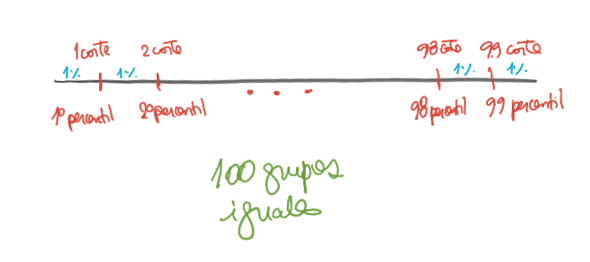 1 corte 2 corte 98 corte 99 corte
1% 1% 1% 1%
1º percentil 2º percentil ... 98 percentil 99 percentil
100 grupos
iguales